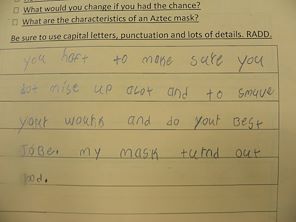 □ What would you change if you had the chance?
□ What are the characteristics of an Aztec mask?
Be sure to use capital letters, punctuation and lots of details. RADD.
you haft to moke sure you
dot mise up alot and to
your and do your Best
JoBe. my mask turnd out